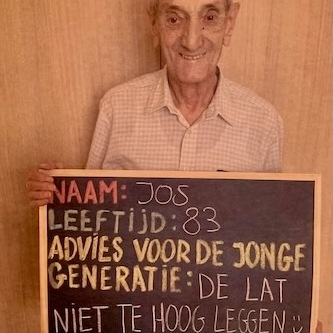 NAAM: JOS
LEEFTIJD: 83
ADVIES VOOR DE JONGE
GENERATIE: DE LAT
NIET TE HOOG LEGGEN